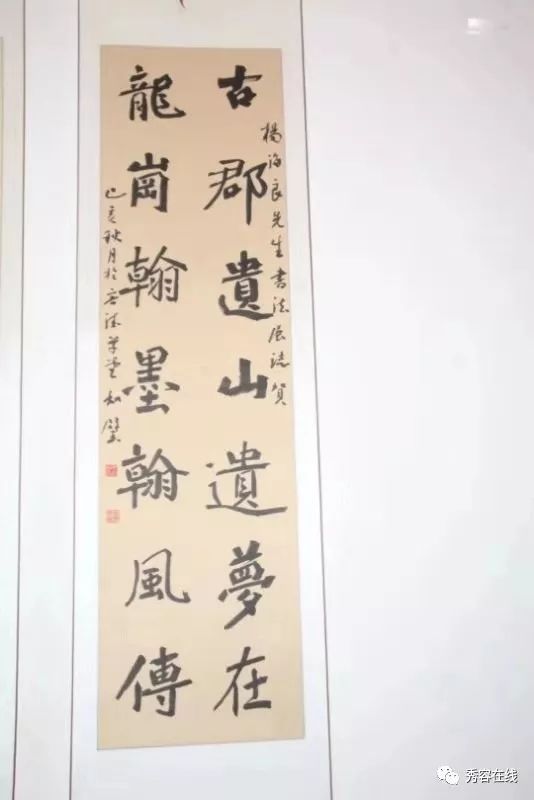 古郡遺山遺夢在
龍崗翰墨翰風傳
楊海良先生書法展誌賀
己亥秋月於
草堂
秀容在线